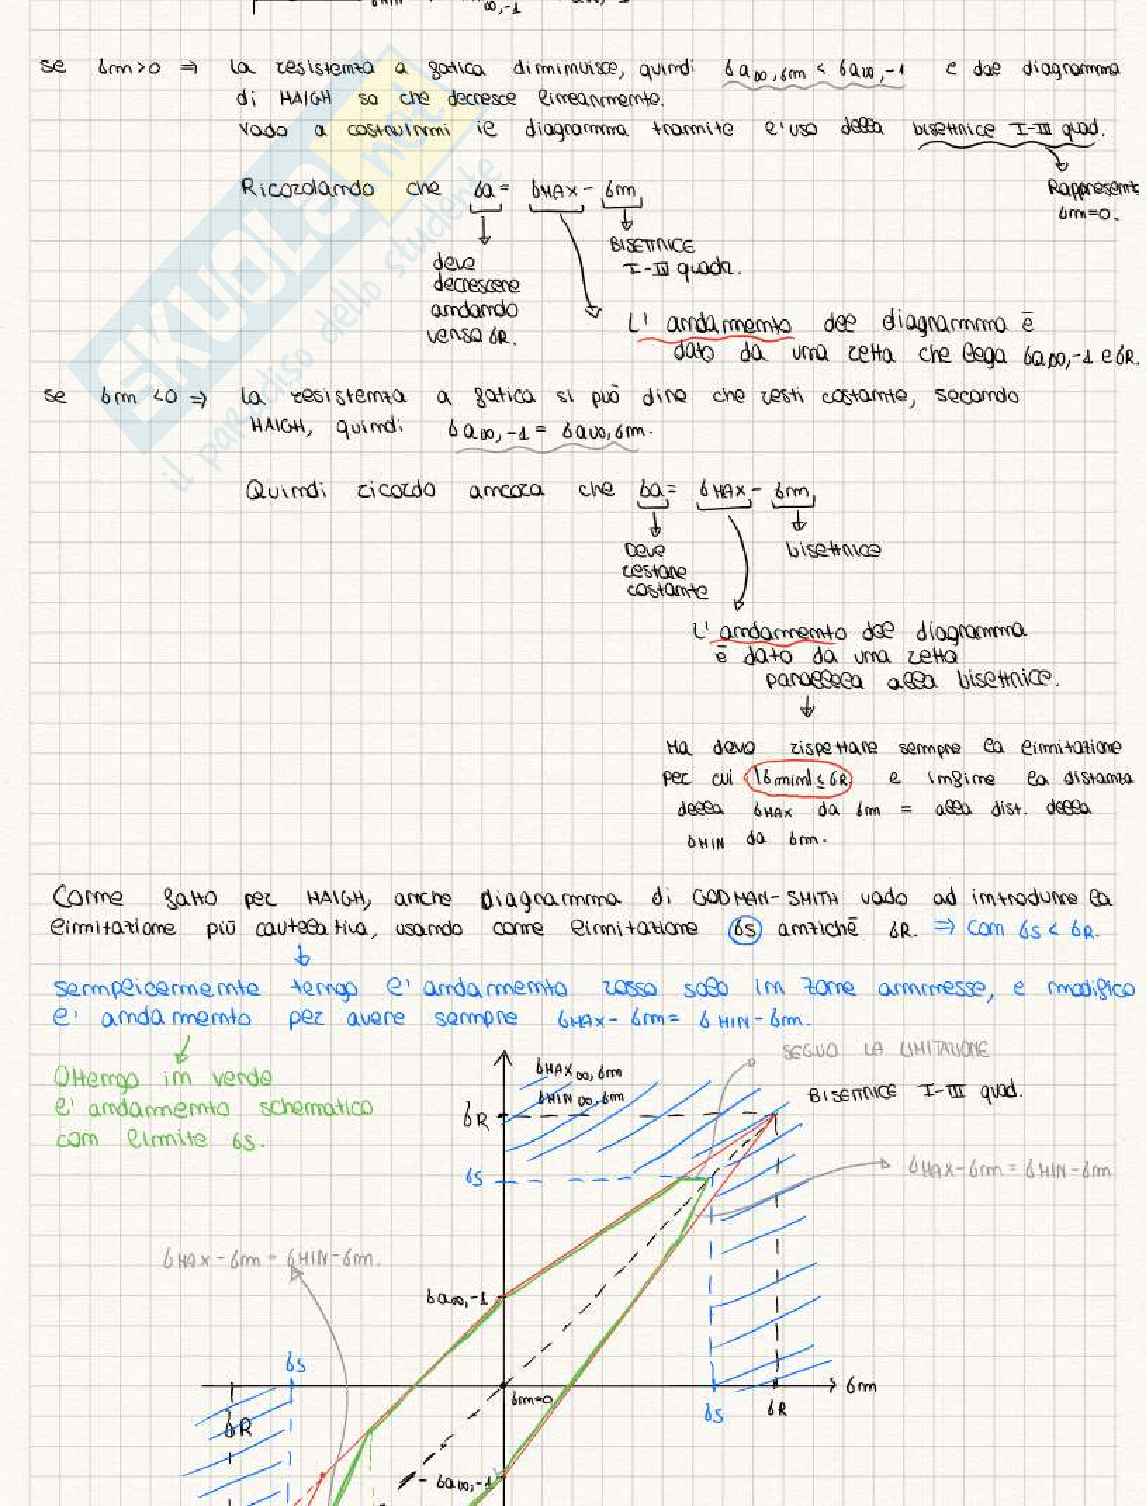 se σm>0 ⇒ la resistenza a fatica diminuisce, quindi σa∞,σm < σa∞,-1 e dal diagramma
di HAIGH so che decresce linearmente.
Vado a costruirmi il diagramma tramite l'uso della bisettrice I-III quad.
Rappresenta
σm=0.
Ricordando che σa= σMAX - σm
BISETTRICE
I-III quadr.
deve
decrescere
andando
verso σR.
L'andamento del diagramma è
dato da una retta che lega σa∞,-1 e σR.
se σm <0 ⇒ la resistenza a fatica si può dire che resti costante, secondo
HAIGH, quindi σa∞,-1 = σa∞,σm.
Quindi ricordo ancora che σa= σMAX - σm
Deve
restare
costante
bisettrice
L'andamento del diagramma
è dato da una retta
parallela alla bisettrice.
Ma devo rispettare sempre la limitazione
per cui |σmin| ≤ σR e infine la distanza
della σMAX da σm = alla dist. della
σMIN da σm.
Come fatto per HAIGH, anche diagramma di GODMAN-SMITH vado ad introdurre la
limitazione più cautelativa, usando come limitazione σS antichè σR. ⇒ com σS < σR.
semplicemente tengo l'andamento rosso solo in zone ammesse, e modifico
l'andamento per avere sempre σMAX - σm = σMIN - σm.
Ottengo in verde
l'andamento schematico
com limite σS.
SEGUO LA LIMITAZIONE
σMAX∞,σm
σMIN∞,σm
BISETTRICE I-III quad.
σR
σS
σMAX-σm = σMIN-σm
σMAX - σm = σMIN - σm.
σa∞,-1
σS
σm=0
σm
σR
σS
σR
-σa∞,-1
SKUOLA.net
il paradiso dello studente